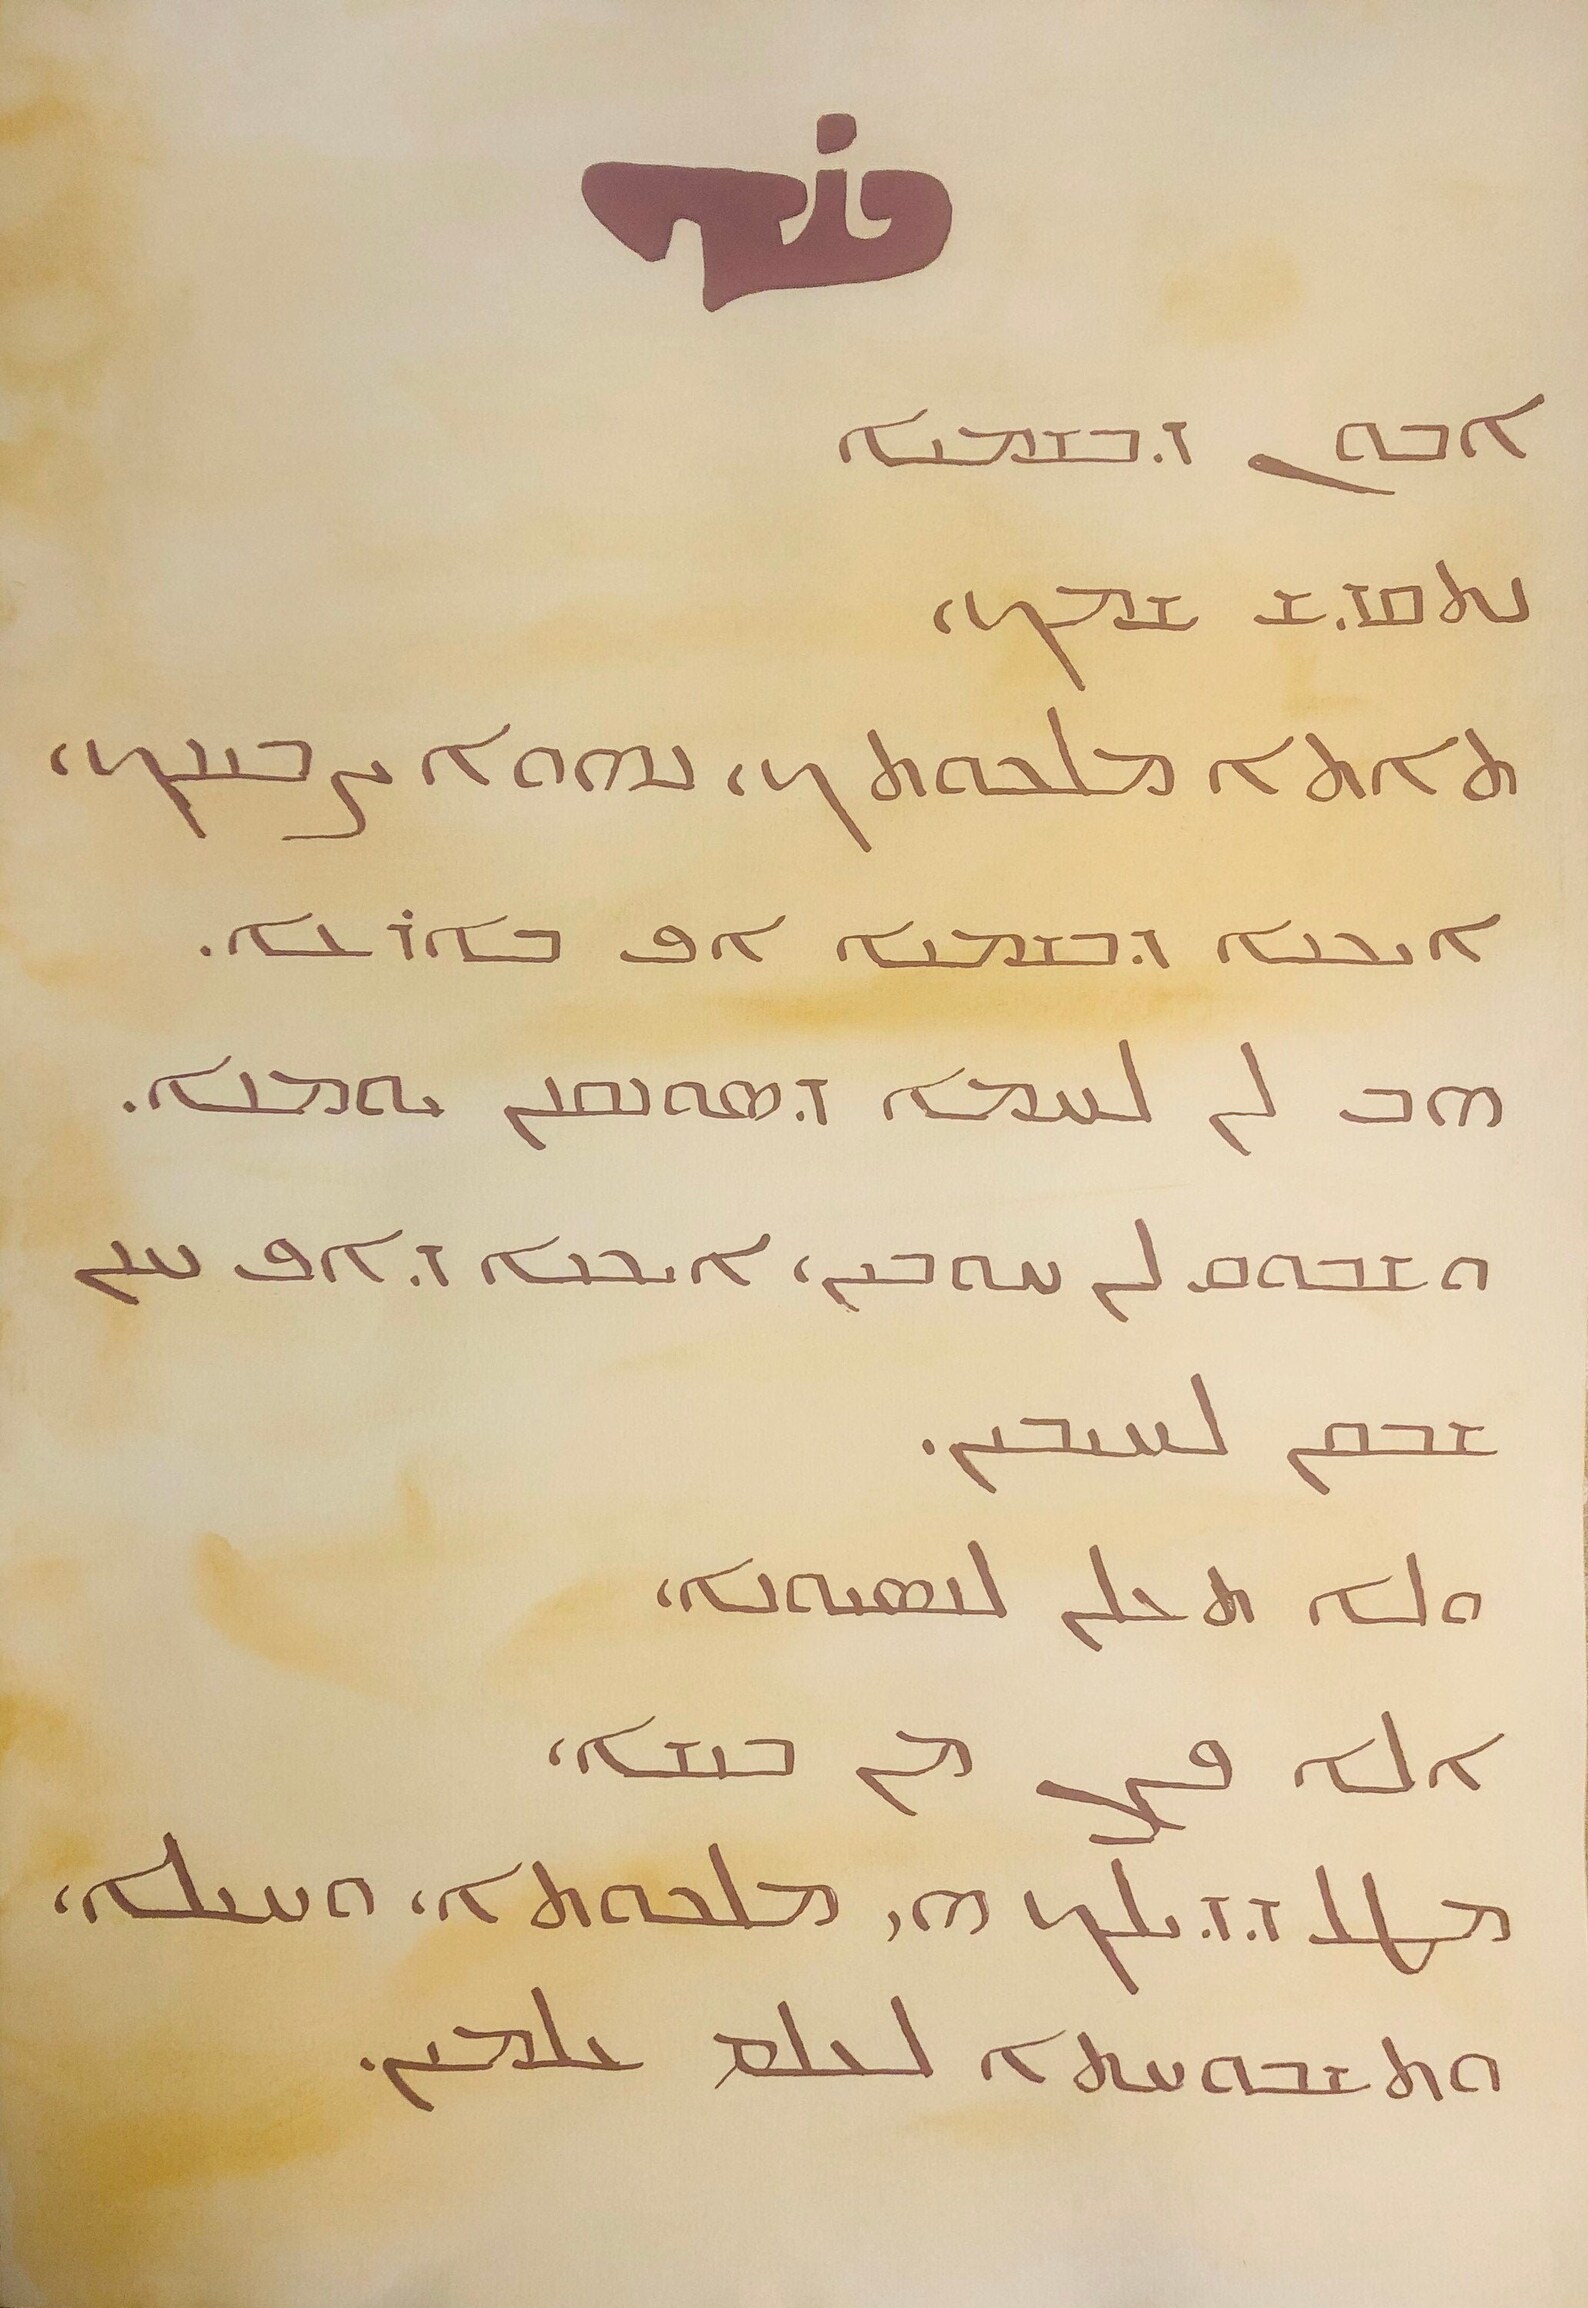 ܐܒܘܢ ܕܒܫܡܝܐ
ܢܬܩܕܫ ܫܡܟ،
ܬܐܬܐ ܡܠܟܘܬܟ، ܢܗܘܐ ܨܒܝܢܟ،
ܐܝܟܢܐ ܕܒܫܡܝܐ ܐܦ ܒܐܪܥܐ.
ܗܒ ܠܢ ܠܚܡܐ ܕܣܘܢܩܢܢ ܝܘܡܢܐ.
ܘܫܒܘܩ ܠܢ ܚܘܒܝܢ، ܐܝܟܢܐ ܕܐܦ ܚܢܢ
ܫܒܩܢ ܠܚܝܒܝܢ.
ܘܠܐ ܬܥܠܢ ܠܢܣܝܘܢܐ،
ܐܠܐ ܦܨܢ ܡܢ ܒܝܫܐ،
ܡܛܠ ܕܕܝܠܟ ܗܝ ܡܠܟܘܬܐ، ܘܚܝܠܐ،
ܘܬܫܒܘܚܬܐ ܠܥܠܡ ܥܠܡܝܢ.